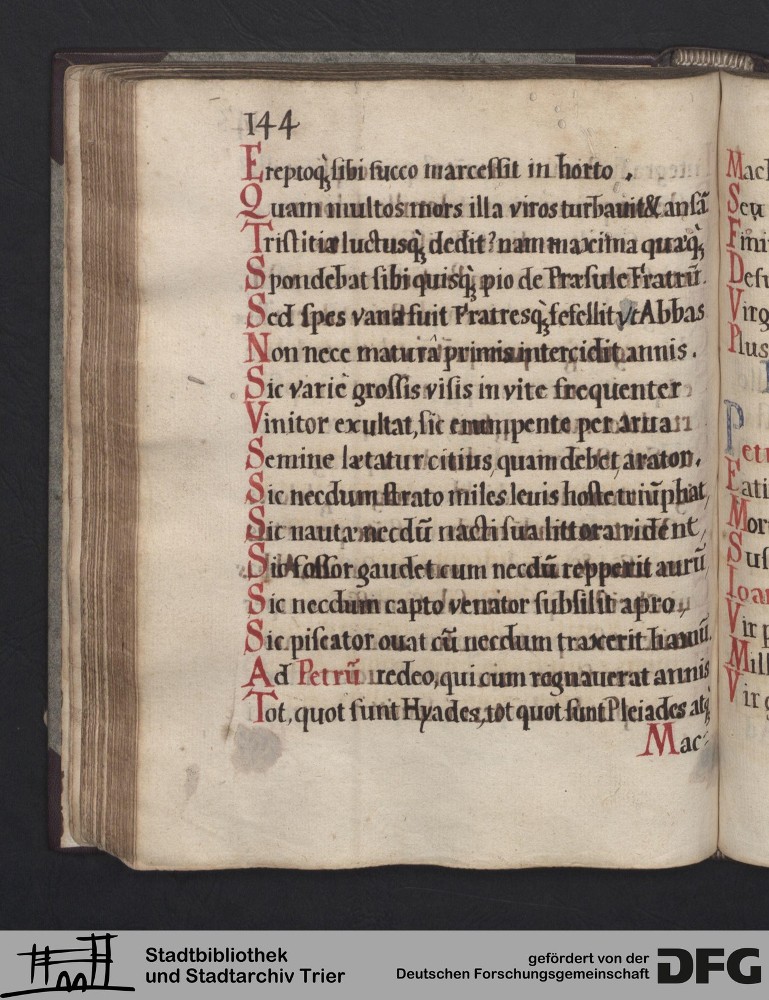 144
Ereptoq́; sibi succo marcessit in horto .
Quam multos mors illa viros turbauit & ansā
Tristitiæ luctusq́; dedit? nam maxima quæq́;
Spondebat sibi quisq́; pio de Præsule Fratrū.
Sed spes vana fuit Fratresq́; fefellit, vt Abbas
Non nece maturâ primis intercidit annis.
Sic variè grossis visis in vite frequenter
Vinitor exultat, sic erumpente per arua
Semine lætatur citius, quam debet, arator.
Sic necdum strato miles leuis hoste triūphat,
Sic nautæ necdū nacti sua littora rident,
Sic fossor gaudet cum necdū repperit aurū,
Sic necdum capto venator subsilit apro,
Sic piscator ouat cū necdum traxerit hamū.
Ad Petrū redeo, qui cum regnauerat annis
Tot, quot sunt Hyades, tot quot sunt Pleiades atq́;
Mac-
Mach
Seu
Fini
Defu
Virg
Plus
P
etr
Fati
Mor
Suf
Ioan
Vir p
Mill
Vir g
Stadtbibliothek
und Stadtarchiv Trier
gefördert von der
Deutschen Forschungsgemeinschaft
DFG